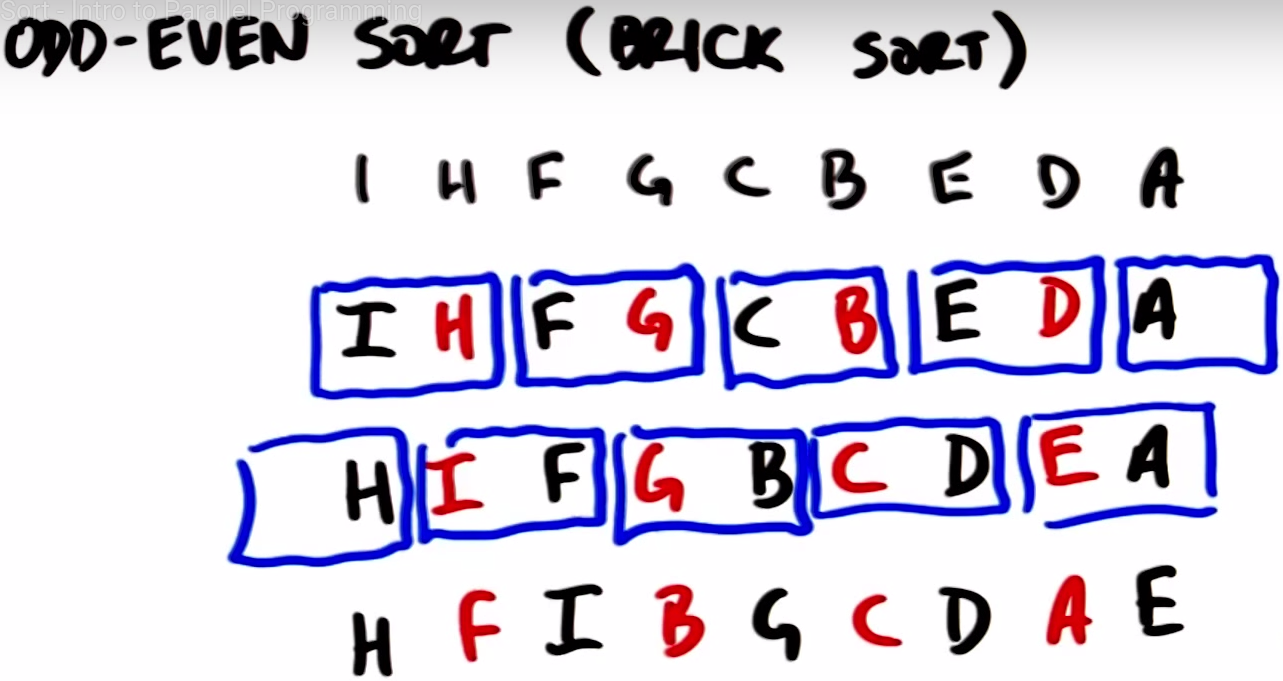 Sort - Intro to Parallel Programming
ODD-EVEN SORT (BRICK SORT)
I H F G C B E D A
I H F G C B E D A
H I F G B C D E A
H F I B G C D A E